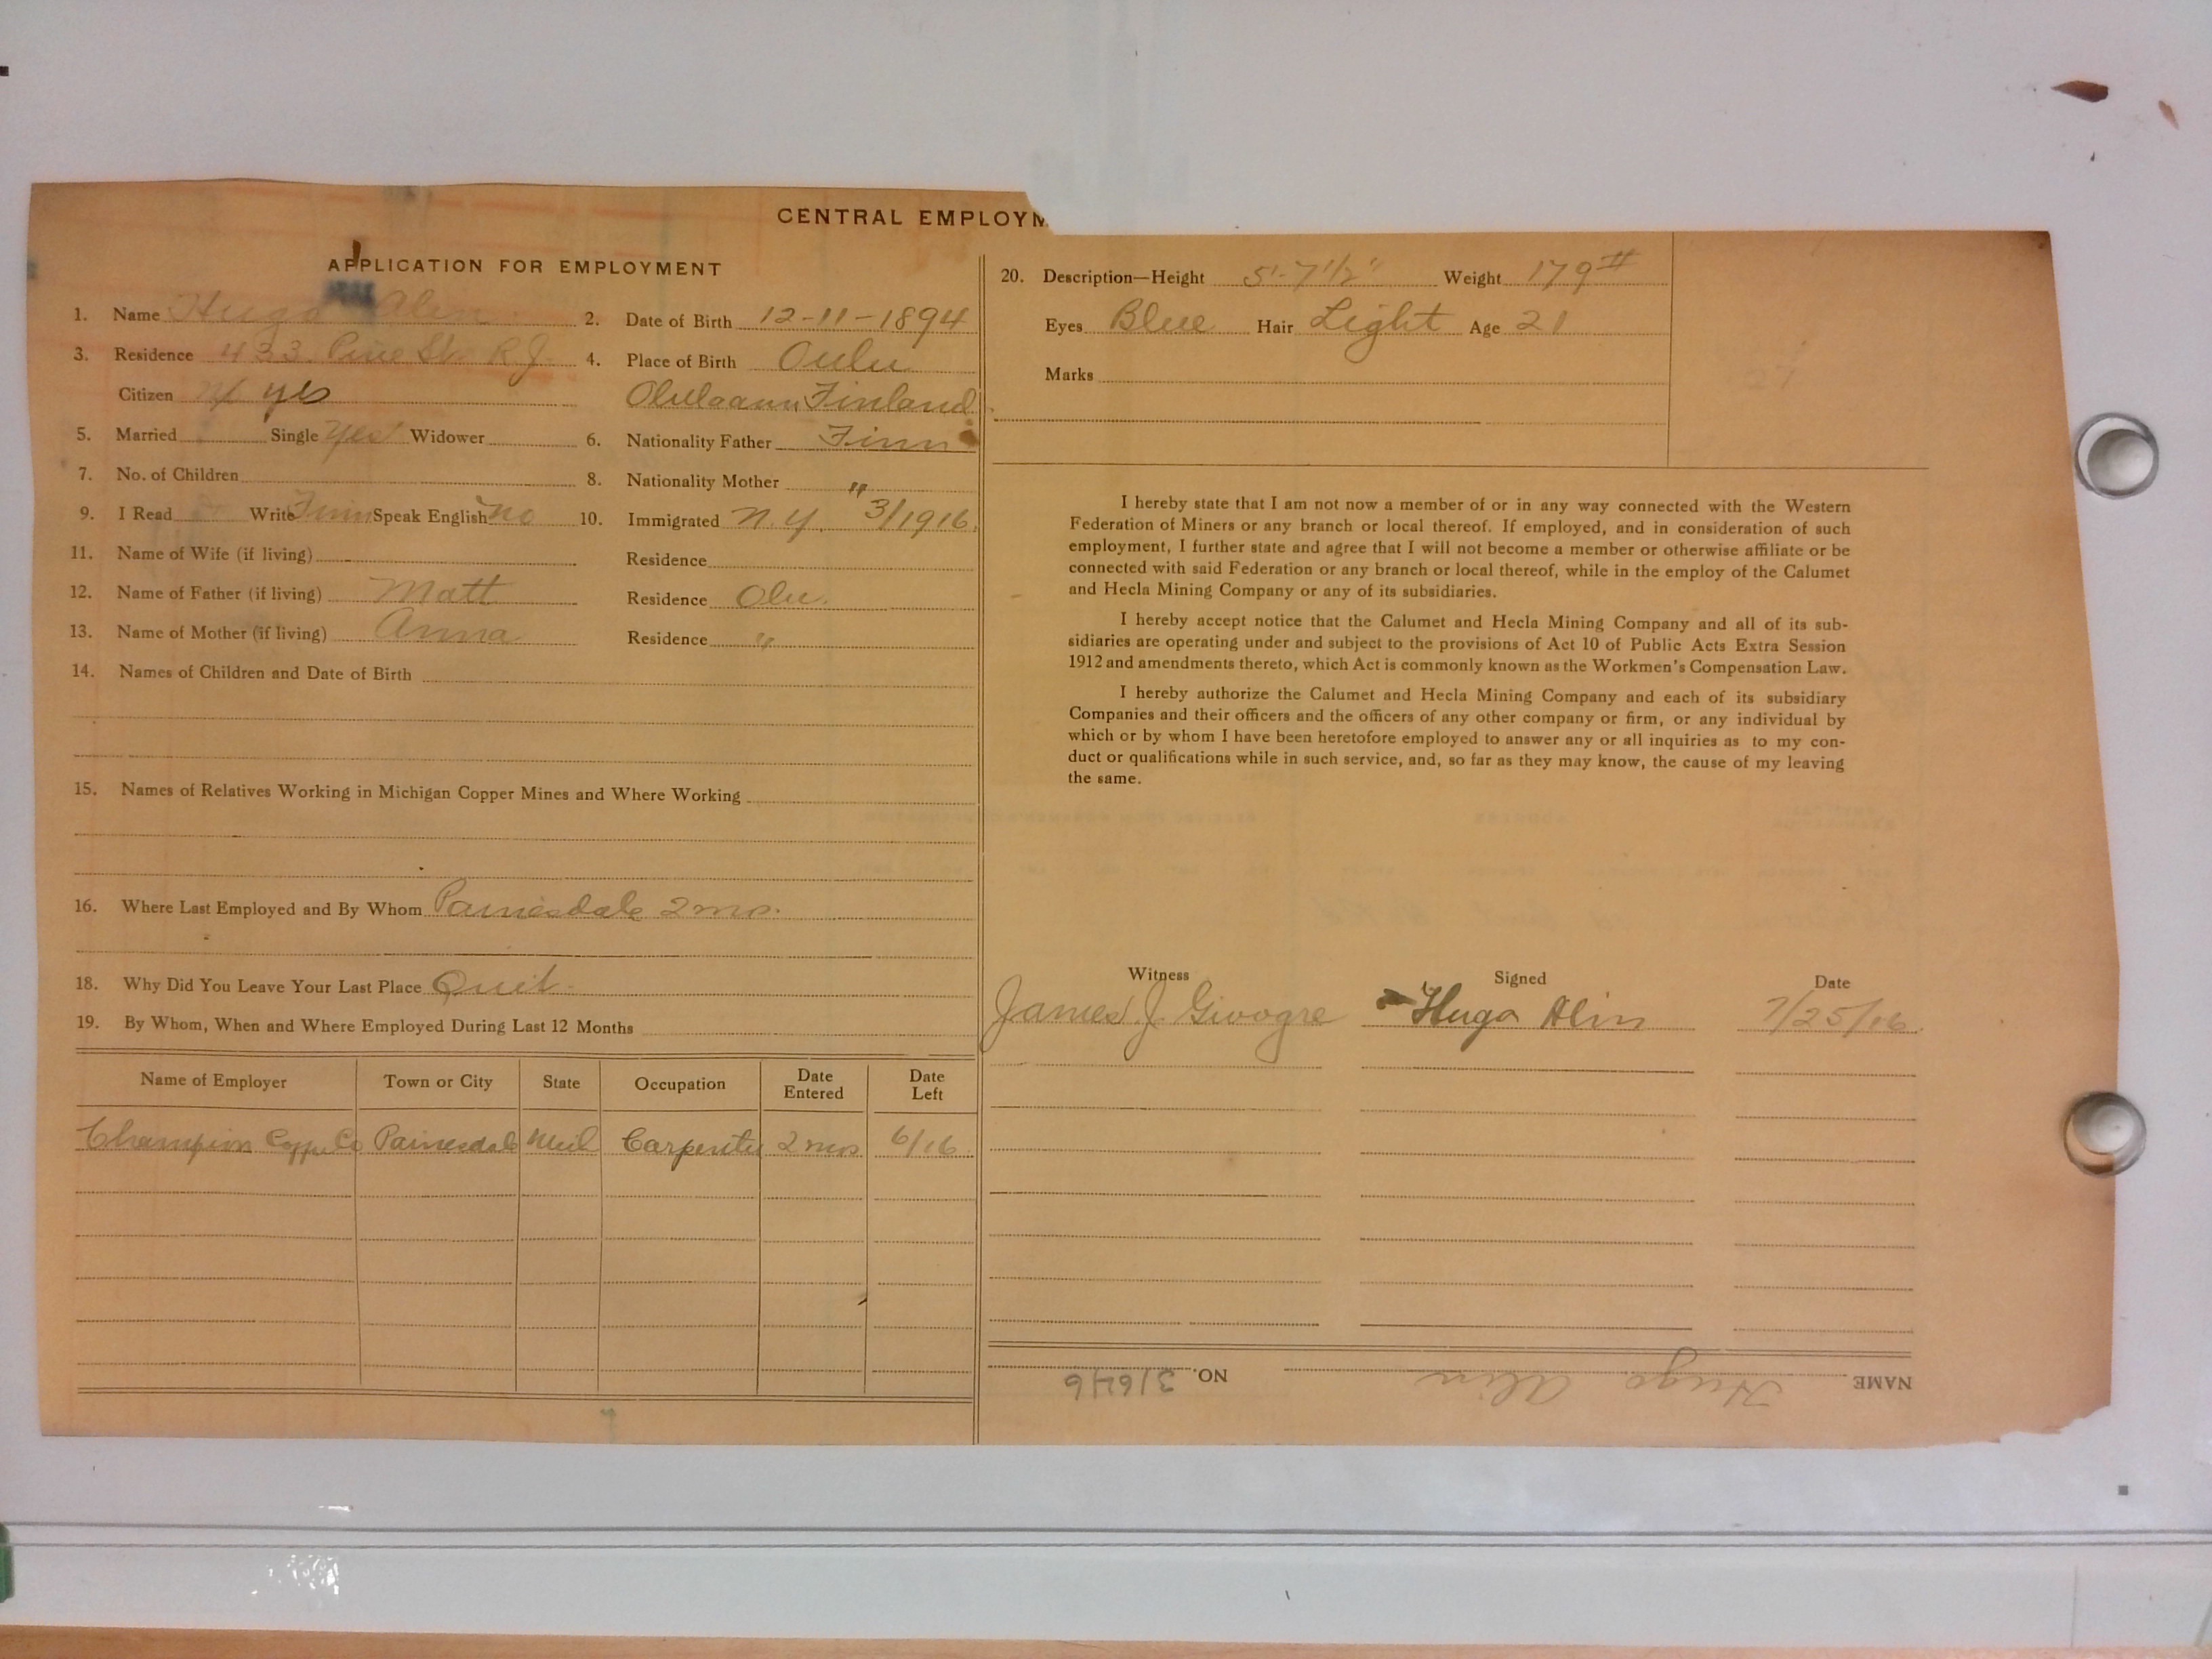 CENTRAL EMPLOYM
APPLICATION FOR EMPLOYMENT
1. Name Hugo Alin 2. Date of Birth 12-11-1894
3. Residence 433 Pine St. R.J. 4. Place of Birth Oulu
Citizen yes Finland
5. Married Single Yes Widower 6. Nationality Father Finn
7. No. of Children 8. Nationality Mother "
9. I Read Write Finn Speak English no 10. Immigrated N.Y. 3/1916
11. Name of Wife (if living) Residence
12. Name of Father (if living) Matt Residence Olu.
13. Name of Mother (if living) Anna Residence "
14. Names of Children and Date of Birth
15. Names of Relatives Working in Michigan Copper Mines and Where Working
16. Where Last Employed and By Whom Painesdale 2 mo.
18. Why Did You Leave Your Last Place Quit
19. By Whom, When and Where Employed During Last 12 Months
Name of Employer Town or City State Occupation Date Entered Date Left
Champion Copper Co Painesdale Mich Carpenter 2 mos 6/16
20. Description—Height 5'-7 1/2" Weight 179#
Eyes Blue Hair Light Age 21
Marks
I hereby state that I am not now a member of or in any way connected with the Western
Federation of Miners or any branch or local thereof. If employed, and in consideration of such
employment, I further state and agree that I will not become a member or otherwise affiliate or be
connected with said Federation or any branch or local thereof, while in the employ of the Calumet
and Hecla Mining Company or any of its subsidiaries.
I hereby accept notice that the Calumet and Hecla Mining Company and all of its sub-
sidiaries are operating under and subject to the provisions of Act 10 of Public Acts Extra Session
1912 and amendments thereto, which Act is commonly known as the Workmen's Compensation Law.
I hereby authorize the Calumet and Hecla Mining Company and each of its subsidiary
Companies and their officers and the officers of any other company or firm, or any individual by
which or by whom I have been heretofore employed to answer any or all inquiries as to my con-
duct or qualifications while in such service, and, so far as they may know, the cause of my leaving
the same.
Witness Signed Date
James J. Givogre Hugo Alin 7/25/16
NAME Hugo Alin NO. 31646